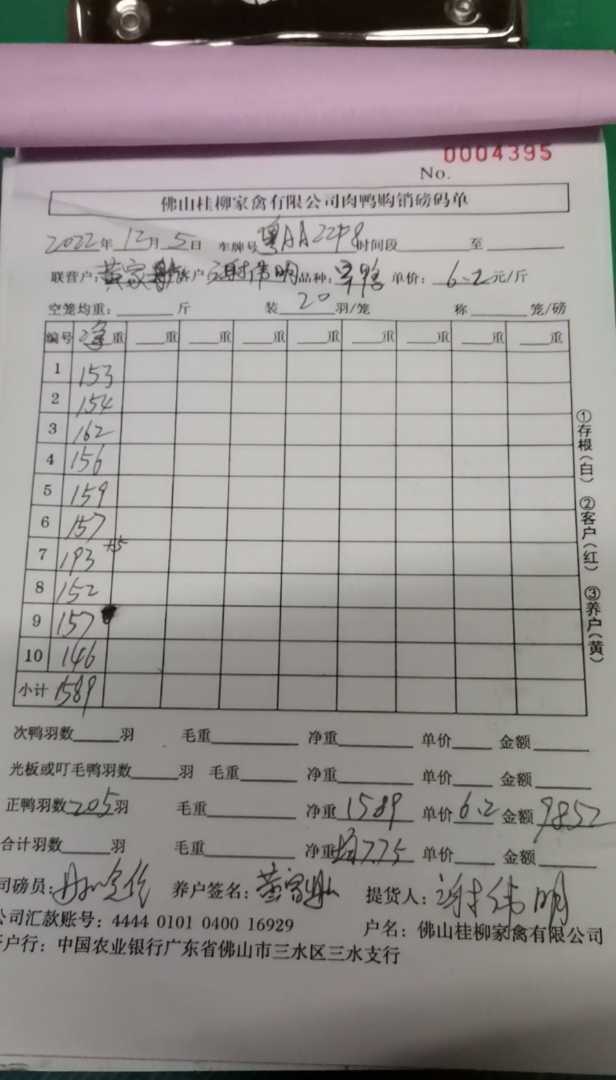 No. 0004395
佛山桂柳家禽有限公司肉鸭购销磅码单
2022年 12月 5日 车牌号 粤AA22 时间段 至
联营户: 黄家 客户 谢伟明 品种: 单价: 6.2 元/斤
空笼均重: 斤 装 20 羽/笼 称 笼/磅
编号 净重 重 重 重 重 重 重 重 重
1 153
2 154
3 162
4 156
5 159
6 157
7 193 +5
8 152
9 157
10 146
小计 1589
①存根(白) ②客户(红) ③养户(黄)
次鸭羽数 羽 毛重 净重 单价 金额
光板或叮毛鸭羽数 羽 毛重 净重 单价 金额
正鸭羽数 205 羽 毛重 净重 1589 单价 6.2 金额 9852
合计羽数 羽 毛重 净重 均7.75 单价 金额
司磅员: 养户签名: 黄家 提货人: 谢伟明
公司汇款账号: 4444 0101 0400 16929 户名: 佛山桂柳家禽有限公司
户行: 中国农业银行广东省佛山市三水区三水支行